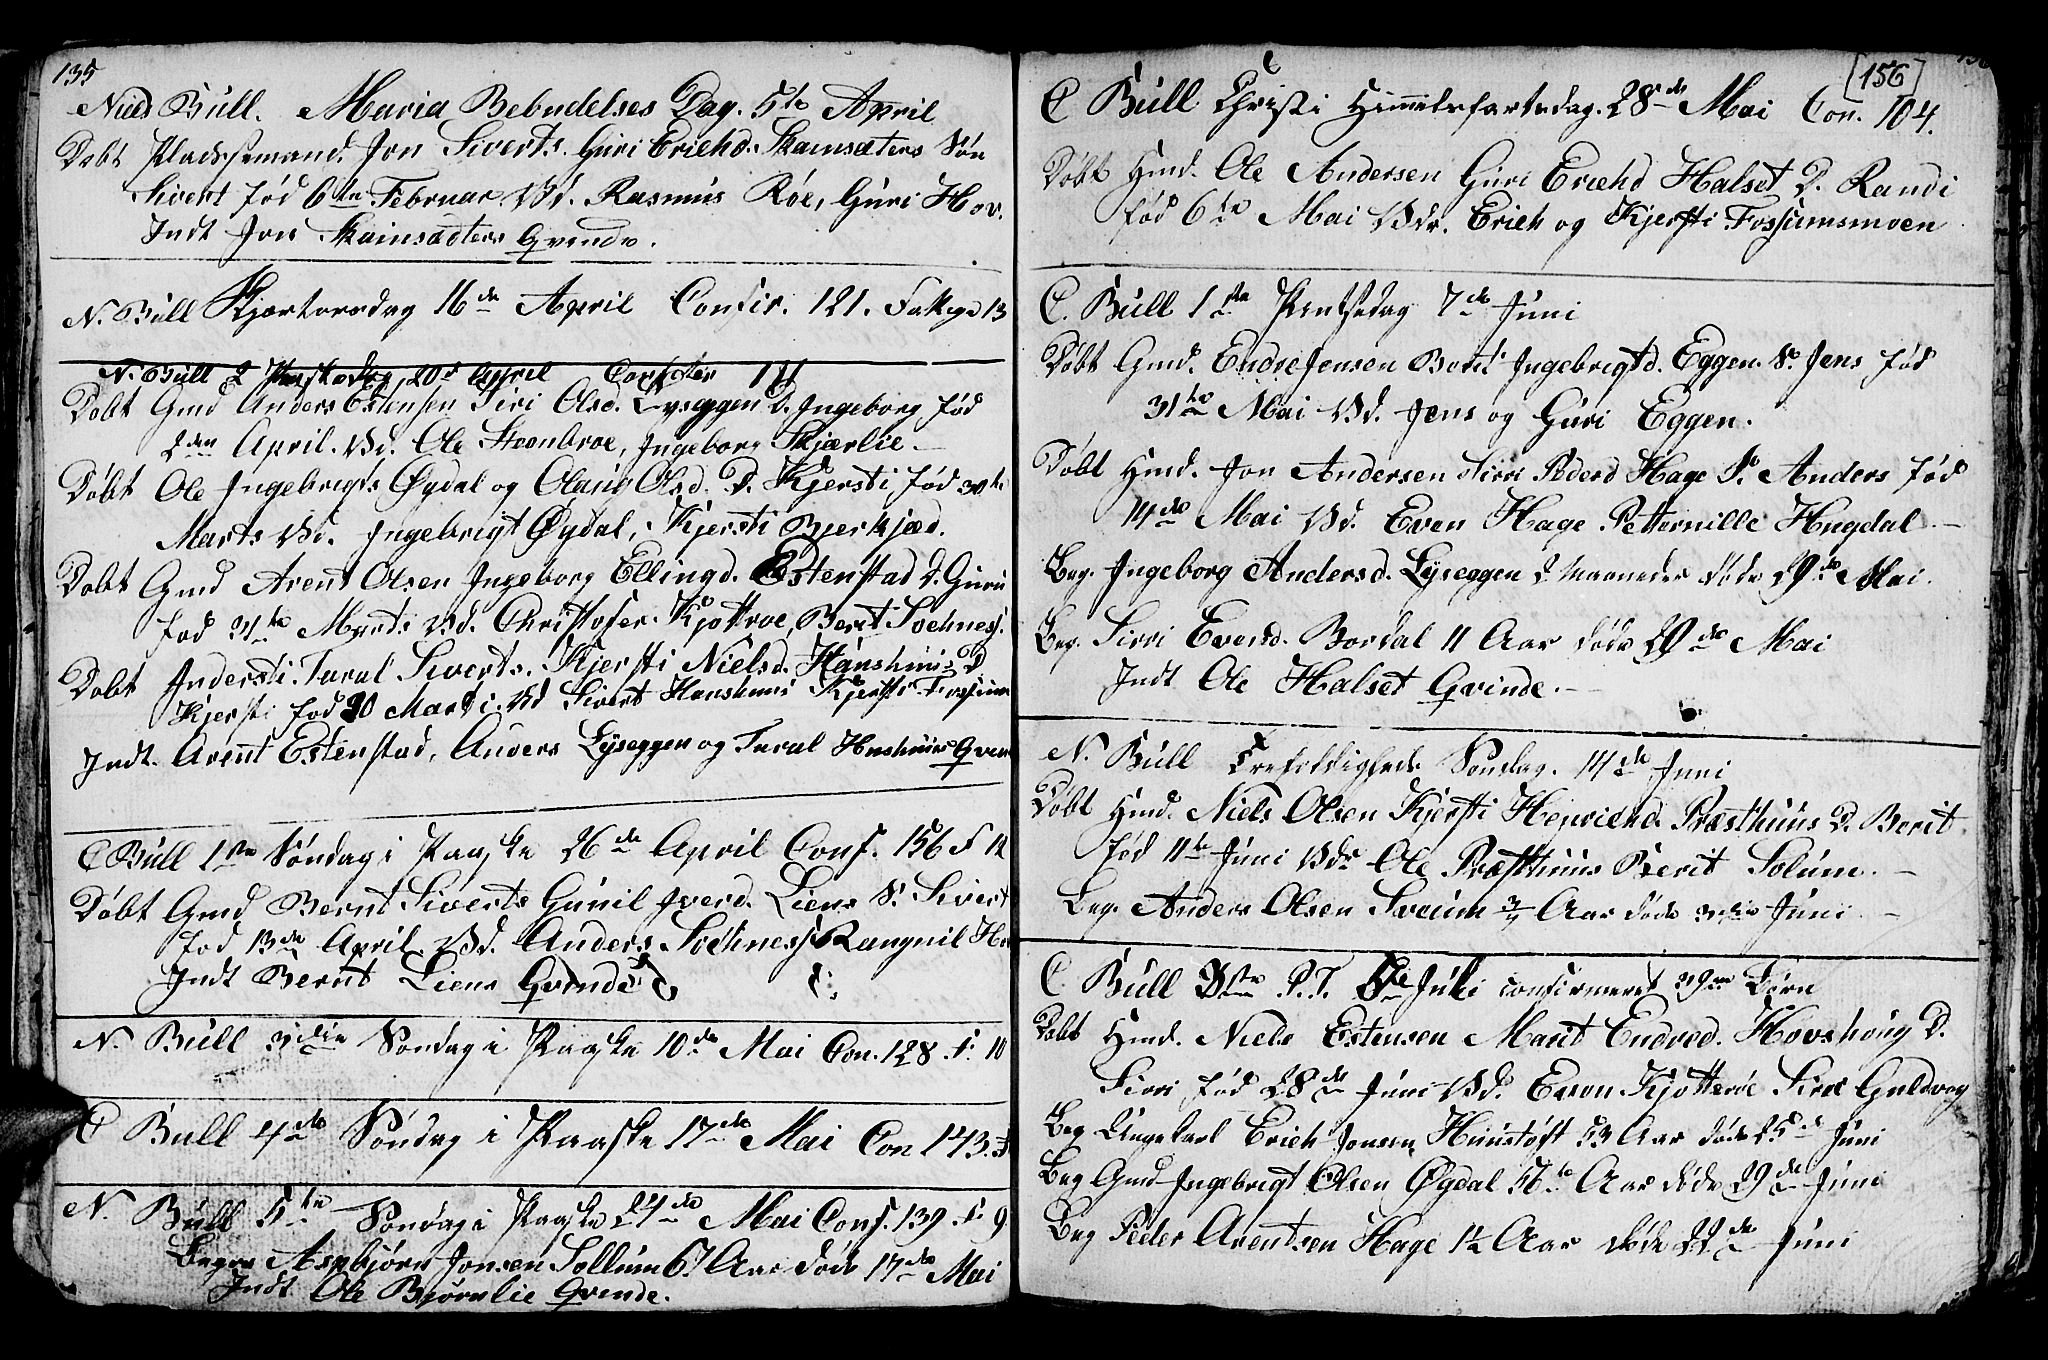 135
Niels Bull. Maria Bebudelses Dag. 5te April
Døbt Pladsemand. Jon Siverts. Guri Erichd. Skamsæters Søn
Sivert fød 6te Februar Vd. Rasmus Røe, Guri Hov.
Indt Jon Skamsædters Qvinde.
N. Bull Skjærtorsdag 16de April Confir. 121. 13
N. Bull 2 Paaskedag 20d April
Døbt Gmd Anders Estensen Siri Olsd. Lyseggen D. Ingeborg fød
2den April. Vd. Ole Steenbroe, Ingeborg Skjærlie.
Døbt Ole Ingebrigts Øgdal og Olaug Olsd. D. Kjersti fød 30te
Marts Vd. Ingebrigt Øgdal, Kjersti Bjerkjæd.
Døbt Gmd Arent Olsen Ingeborg Ellingd. Estenstad D. Guru
fød 31te Marts Vd. Christofer Kjøttroe, Berit Sochness.
Døbt Indersti. Taral Siverts. Kjersti Nielsd. Hanshuus D
Kjersti fød 30 Marti. Vd Sivert Hanshuus Kjersti Fossum
Indt. Arent Estenstad, Anders Lyseggen og Taral Hnshuus Qven
C Bull 1ste Søndag i Paaske 26de April Conf. 156 F 12
Døbt Gmd Bernt Siverts Gunil Iverd. Liens S. Sivert
fød 13de April. Vd. Anders Sochness Rangnil
Indt Bernt Liens Qvinde
N. Bull 3die Søndag i Paaske 10de Mai Con. 128. F. 10
C Bull 4de Søndag i Paaske 17de Mai Con 143.
N. Bull 5te Søndag i Paaske 24de Mai Conf. 139. F. 9
Begr. Asbjørn Jonsen Sollum 67 Aar døde 17de Mai
Indt Ole Bjørnlie Qvinde.
156
C Bull Christi Himmelsfartsdag. 28de Mai Con. 104.
Døbt Hmd. Ole Andersen Guri Erichd Halset D. Randi
fød 6te Mai Vdr. Erich og Kjersti Fossumsmoen
C. Bull 1ste Pintsedag 7de Juni
Døbt Gmd. Endre Jensen Borit Ingebrigtd. Eggen. S. Jens fød
31te Mai Vd. Jens og Guri Eggen.
Døbt Hmd. Jon Andersen Sirri Pederd Hage S. Anders fød
14de Mai Vd. Even Hage Petternille Hugdal.
Beg. Ingeborg Andersd. Lyseggen 2 Maaneder døde 29de Mai.
Beg. Sirri Evensd. Bordal 11 Aar døde 29de Mai
Indt Ole Halset Qvinde.
N. Bull Trefoldigheds Søndag. 14de Juni
Døbt Hmd. Niels Olsen Kjersti Præsthuus D. Berit.
fød 11te Juni Vdr Ole Præsthuus Berit Solum.
Beg. Anders Olsen Sveum 3/4 Aar døde Juni
C Bull Juli confirmeret 39 Børn
Døbt Hmd. Niels Estensen Marit Endred. Hovshoug D.
Sirri fød 28de Juni Vd. Even Kjøtterøe Siri Guldvog
Beg Ungekarl Erich Jonsen Huustoft 53 Aar døde 25de Juni
Beg Gmd Ingebrigt Olsen Øgdal 56te Aar døde 29de Juni
Beg Peder Arentsen Hage 1½ Aar døde 22de Juni